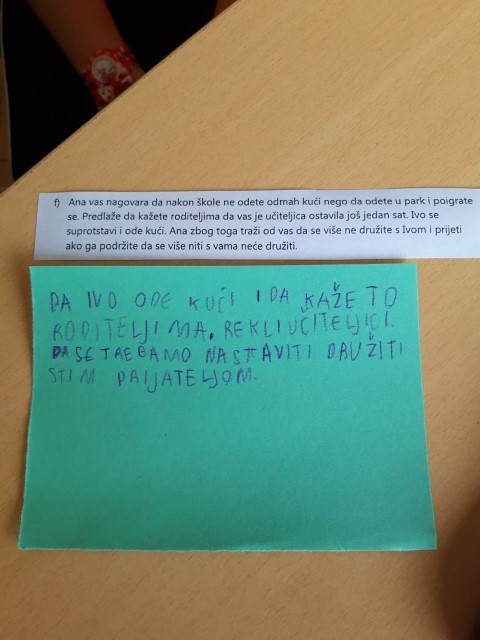 f) Ana vas nagovara da nakon škole ne odete odmah kući nego da odete u park i poigrate
se. Predlaže da kažete roditeljima da vas je učiteljica ostavila još jedan sat. Ivo se
suprotstavi i ode kući. Ana zbog toga traži od vas da se više ne družite s Ivom i prijeti
ako ga podržite da se više niti s vama neće družiti.
DA IVO ODE KUĆI I DA KAŽE TO
RODITELJIMA, REKLI UČITELJICI.
DA SE TREBAMO NASTAVITI DRUŽITI
STIM PRIJATELJOM.